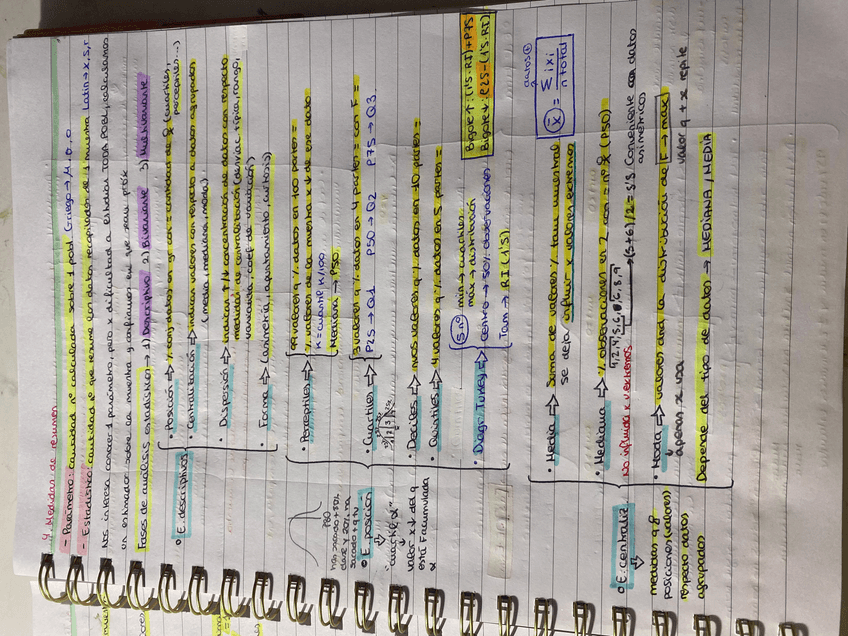 4. Medidas de resumen
- Parámetro: cantidad nº calculada sobre 1 pobl (griego → M, σ, ο
- Estadístico: cantidad nº que resume los datos recopilados de 1 muestra Latín → x, s, r
Nos interesa conocer 1 parámetro, pero x dificultad a estudiar TODA POBL, calculamos
en estimador sobre la muestra y confiamos en que sean próx
Fases de análisis estadístico → 1) Descriptivo 2) Bivariante 3) Multivariante
E. descriptivos
• Posición ⇒ % conj datos en grupos = cantidad de (cuartiles, perceptiles...)
• Centralización ⇒ indican valores con respecto a datos agrupados
(media, mediana, moda)
• Dispersión ⇒ indican +/- concentración de datos con respecto
medidas de centralización (desviac. típica, rango,
varianza, coef de variación)
• Forma ⇒ (asimetría, apuntamiento, curtosis)
P80
has sacado + 80%
clase y 20% ha
sacado + q tú
E. posición
"cuartil α"
valor x ↓ del q
está F acumulada
α
• Perceptiles ⇒ 99 valores q % datos en 100 partes =
% valores de la muestra x ↓ de ese dato
K = cuantil K/100
Mediana → P50
• Cuartiles ⇒ 3 valores q % datos en 4 partes = con F =
P25 → Q1 P50 → Q2 P75 → Q3
• Deciles ⇒ nueve valores q % datos en 10 partes =
• Quintiles ⇒ 4 valores q % datos en 5 partes =
• Diagr. TUKEY ⇒
5 nº
mín → cuartiles
máx → distribución
Centro → 50% observaciones
Tam → RI (1'5)
Bigote ↑: (1'5·RI) + P75
Bigote ↓: P25 - (1'5·RI)
E. centraliz.
medidas q 8
posiciones (valores)
respecto datos
agrupados
• Media ⇒ Suma de valores / tam muestral
se deja influir x valores extremos
datos
x̄ = Σ xi / n total
• Mediana ⇒ % observaciones en 2 con = nº (P50)
1, 2, 4, 5, 6, 6, 8, 9
No influida x v. extremos → (5+6)/2 = 5'5 Conveniente con datos
asimétricos
• Moda ⇒ valores dad la distribución de F → máx
apenas se usa
valor q + se repite
Depende del tipo de datos → MEDIANA / MEDIA